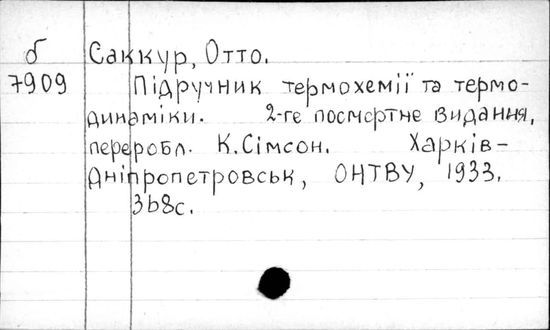 б Саккур, Отто.
7909 Підручник термохемії та термо-
динаміки. 2-ге посмертне видання,
перероbл. К. Сімсон. Харків-
Дніпропетровськ, ОНТВУ, 1933.
368с.